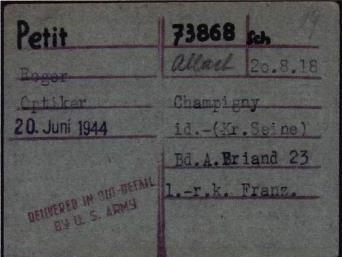 19
Petit 73868 Sch
Roger Allach 20.8.18
Optiker Champigny
20. Juni 1944 id.-(Kr.Seine)
Bd.A.Briand 23
l.-r.k. Franz.
DELIVERED IN OUT-DETAIL
BY U. S. ARMY